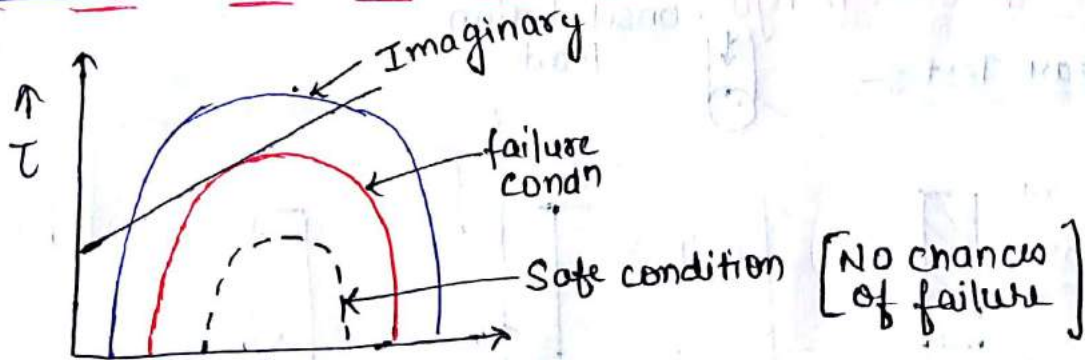 Imaginary
↑
τ
failure
condn
Safe condition [No chances
of failure]